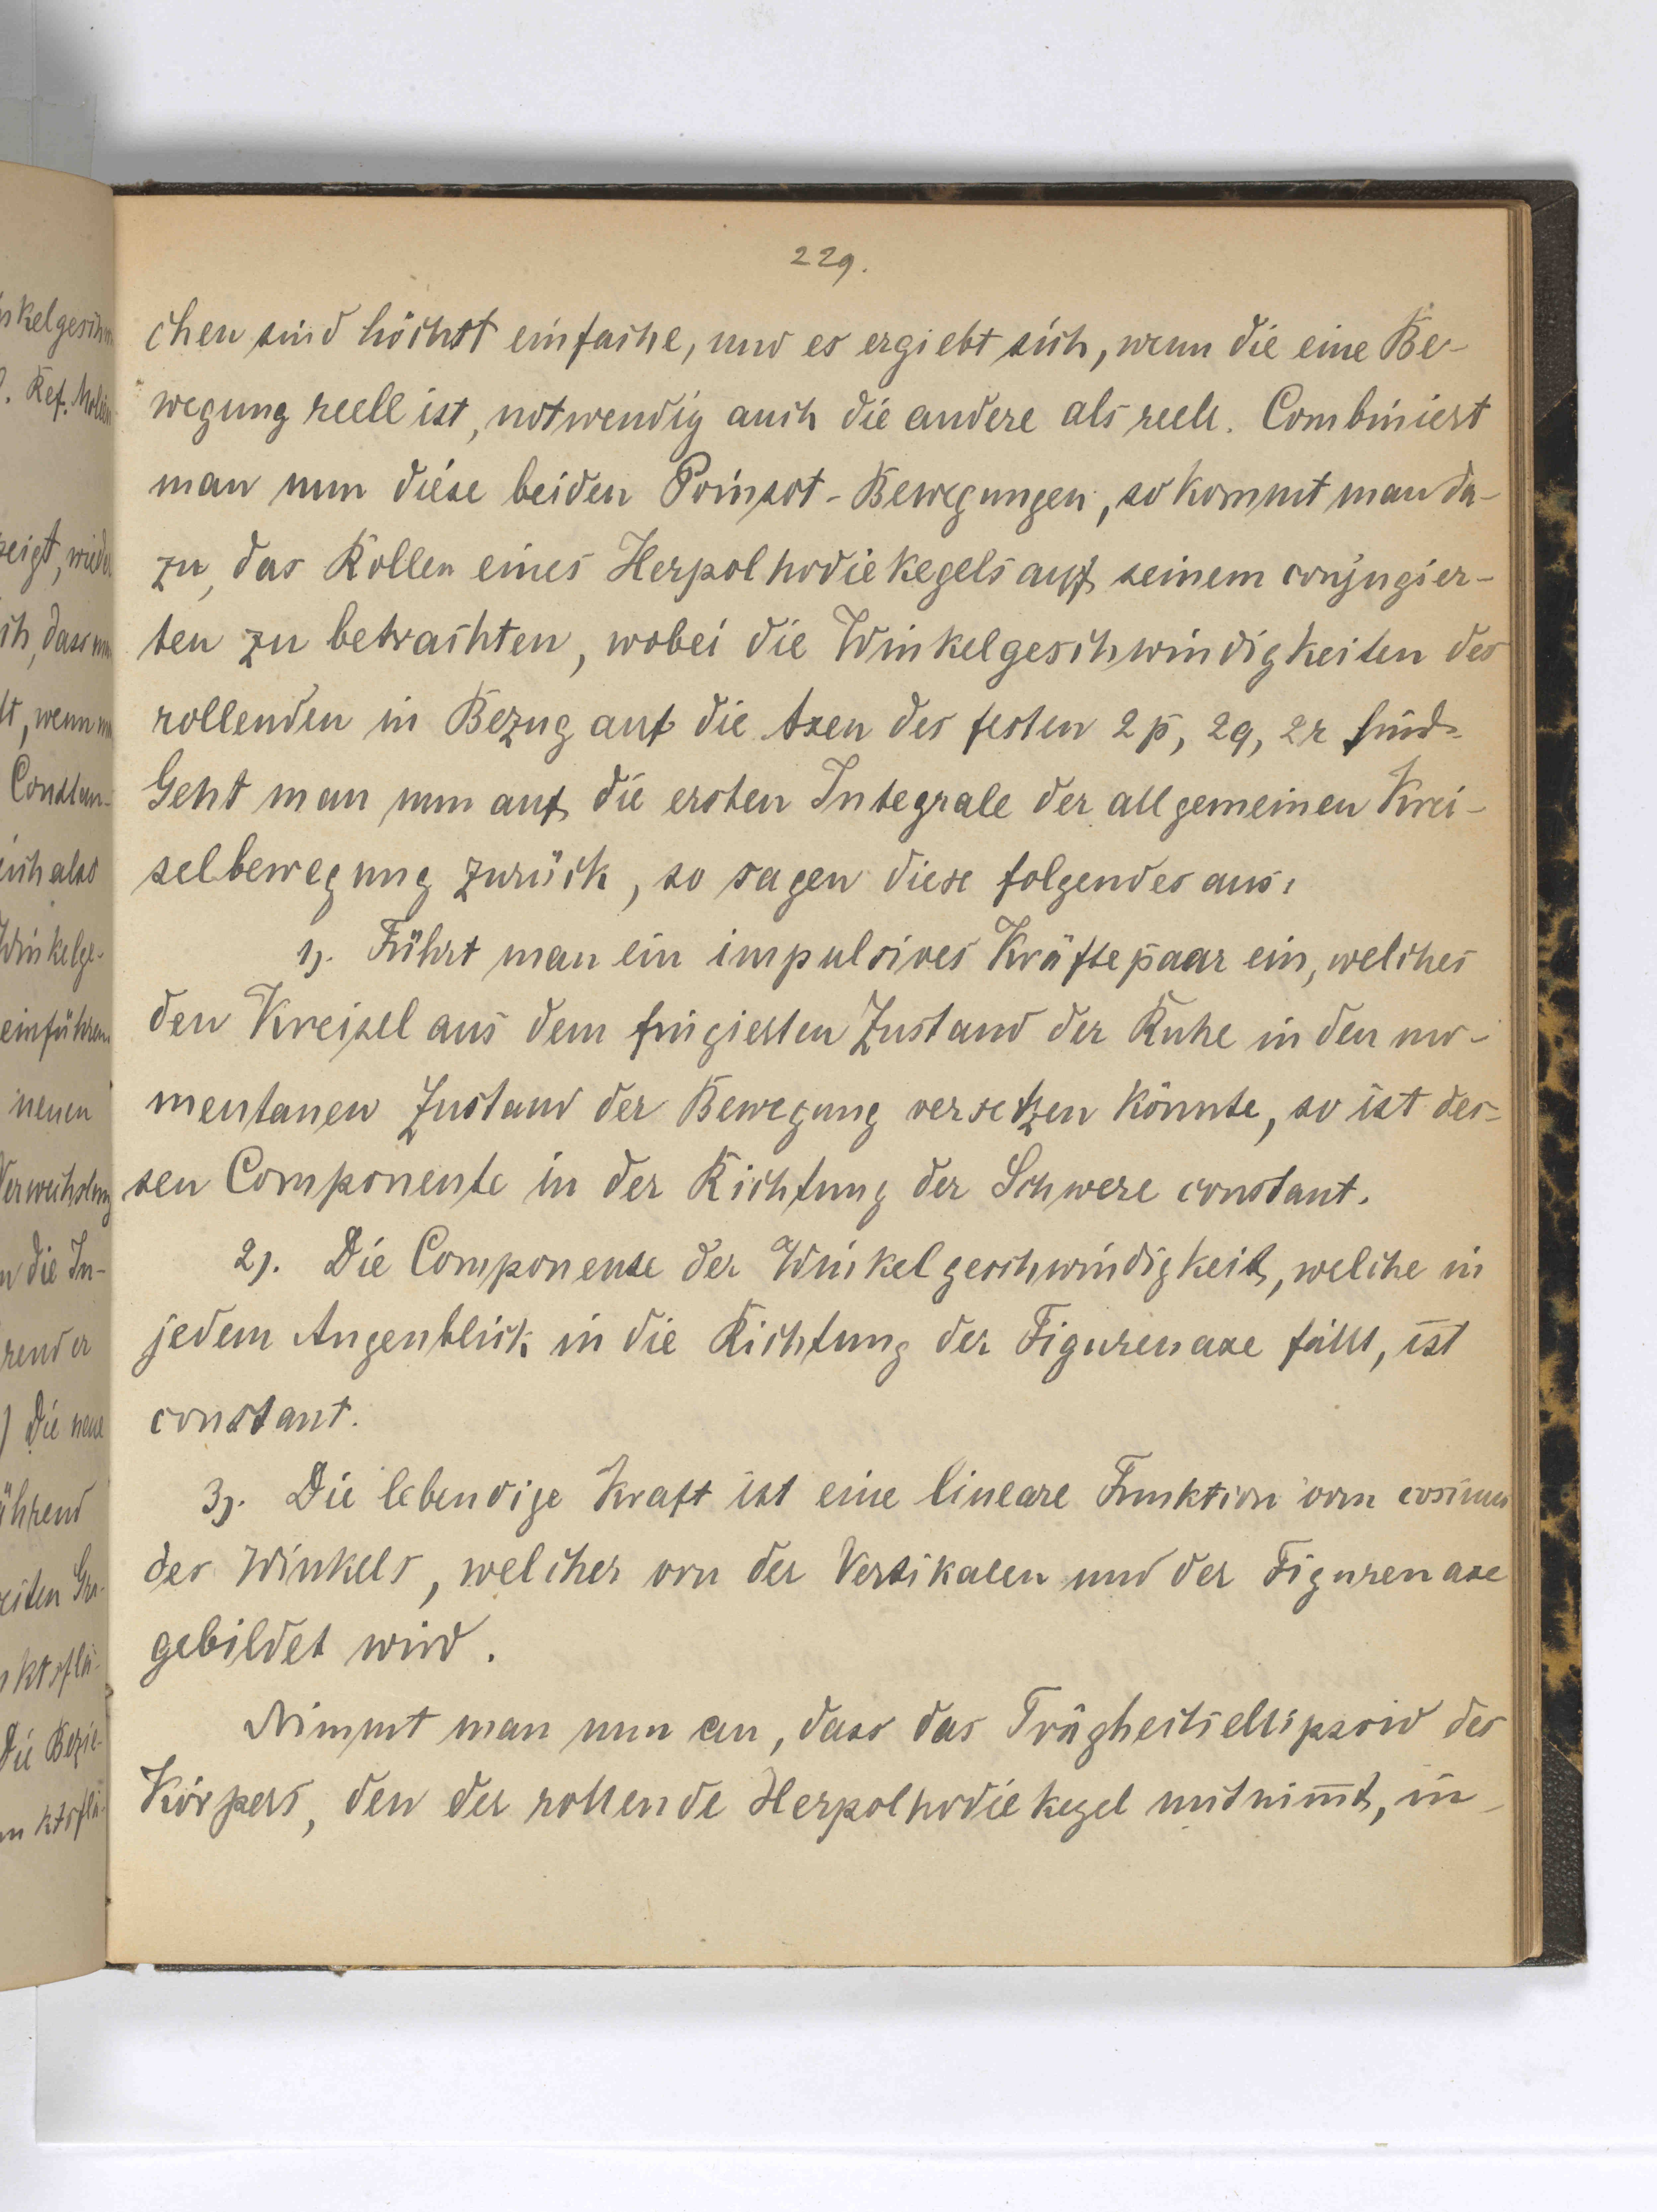 229.
chen sind höchst einfache, und es ergiebt sich, wenn die eine Be-
wegung reell ist, notwendig auch die andere als reell. Combiniert
man nun diese beiden Poinsot-Bewegungen, so kommt man da-
zu, das Rollen eines Herpolhodiekegels auf seinem conjugier-
ten zu betrachten, wobei die Winkelgeschwindigkeiten des
rollenden in Bezug auf die Axen des festen 2p, 2q, 2r sind.
Geht man nun auf die ersten Integrale der allgemeinen Krei-
selbewegung zurück, so sagen diese folgendes aus:
1). Führt man ein impulsives Kräftepaar ein, welches
den Kreisel aus dem fingierten Zustand der Ruhe in den mo-
mentanen Zustand der Bewegung versetzen könnte, so ist des-
sen Componente in der Richtung der Schwere constant.
2). Die Componente der Winkelgeschwindigkeit, welche in
jedem Augenblick in die Richtung der Figurenaxe fällt, ist
constant.
3). Die lebendige Kraft ist eine lineare Funktion vom cosinus
des Winkels, welcher von der Vertikalen und der Figurenaxe
gebildet wird.
Nimmt man nun an, dass das Trägheitsellipsoid des
Körpers, den der rollende Herpolhodiekegel mitnim̅t, in
nkelgeschw
. Ref. Molin
zeigt, wieder
ich, dass man
lt, wenn man
Constan-
sich also
Winkelge-
einführen
neuen
Verwechslung
n die In-
rend er
) Die neue
ährend
eiten Gra-
nktsflä-
Die Bezie-
nktsflä-